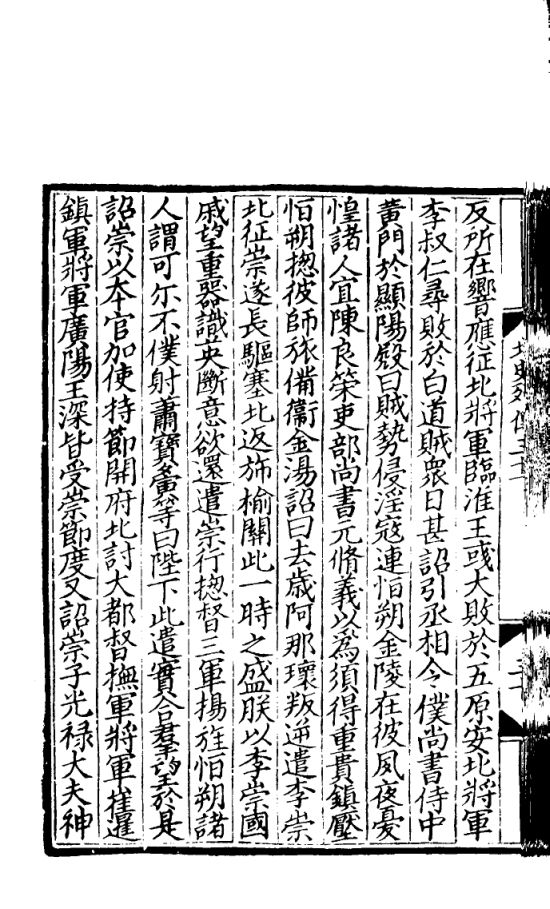 反所在響應征北將軍臨淮王彧大敗於五原安北將軍
李叔仁尋敗於白道賊衆日甚詔引丞相令僕尚書侍中
黄門於顯陽殿曰賊勢侵淫寇連恒朔金陵在彼夙夜憂
惶諸人宜陳良策吏部尚書元脩義以爲須得重貴鎮壓
恒朔揔彼師旅備衞金湯詔曰去歲阿那瓌叛逆遣李崇
北征崇遂長驅塞北返旆榆關此一時之盛朕以李崇國
戚望重器識英斷意欲還遣崇行揔督三軍揚旌恒朔諸
人謂可尔不僕射蕭寶夤等曰陛下此遣實合羣望於是
詔崇以本官加使持節開府北討大都督撫軍將軍崔暹
鎮軍將軍廣陽王深皆受崇節度又詔崇子光禄大夫神